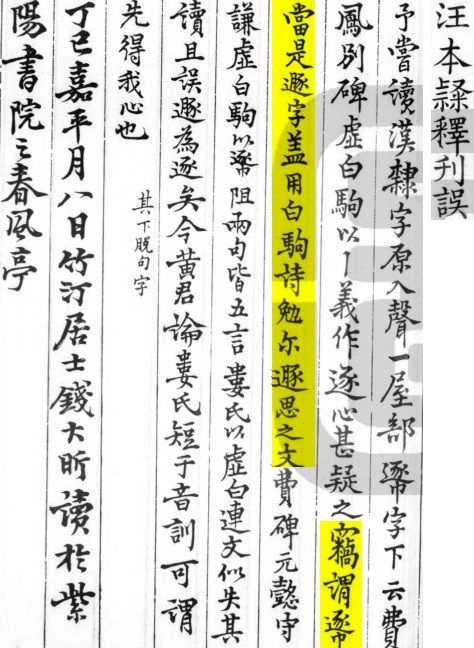 汪本隸釋刊誤
予嘗讀漢隸字原入聲一屋部字下云費
鳳別碑虛白駒以丨義作逐心甚疑之竊謂
當是遯字盖用白駒詩勉尔遯思之文費碑元懿守
謙虛白駒以阻兩句皆五言婁氏以虛白連文似失其
讀且誤遯為逐矣今黃君論婁氏短于音訓可謂
先得我心也
其下脫句字
丁巳嘉平月八日竹汀居士錢大昕讀於紫
陽書院之春風亭